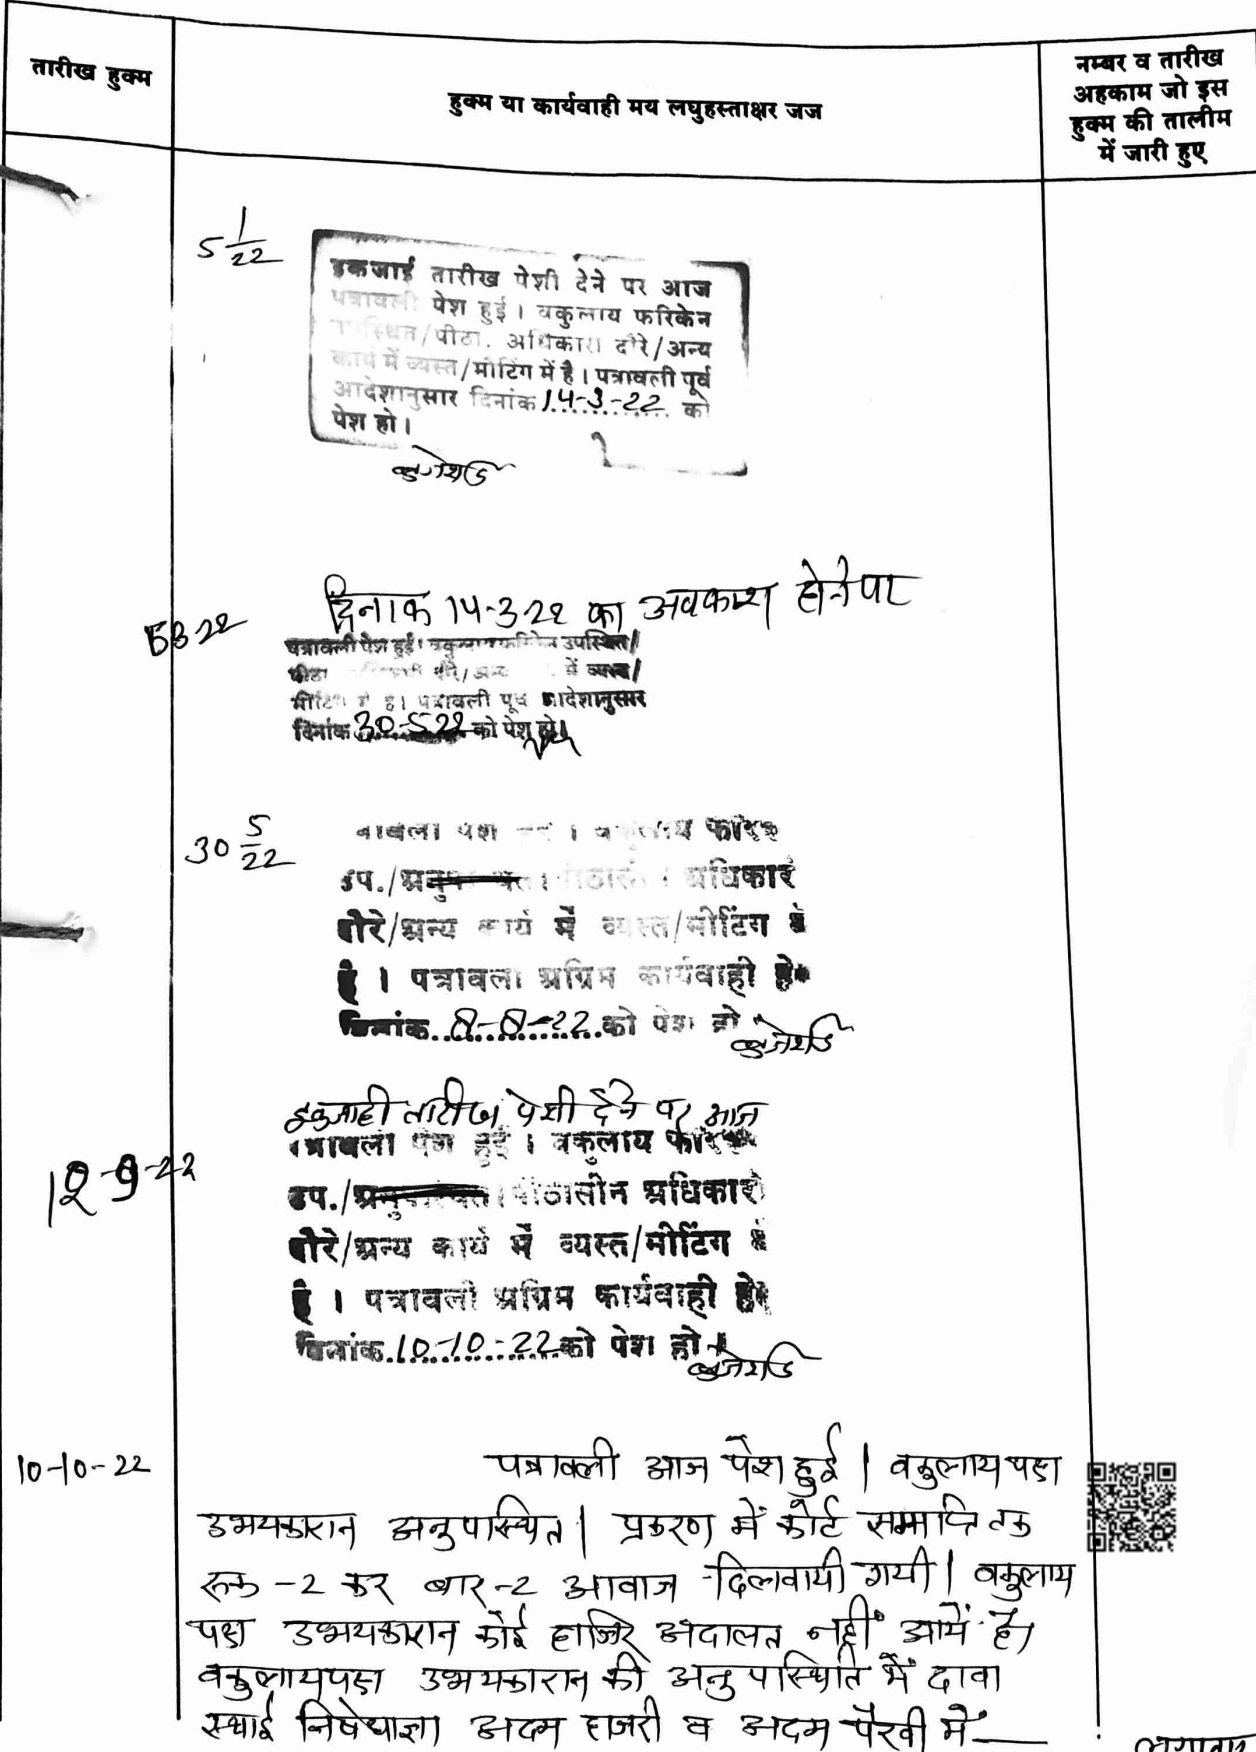 तारीख हुक्म
हुक्म या कार्यवाही मय लघुहस्ताक्षर जज
नम्बर व तारीख
अहकाम जो इस
हुक्म की तालीम
में जारी हुए
5 1/22
इकजाई तारीख पेशी देने पर आज
पत्रावली पेश हुई। वकुलाय फरिकेन
उपस्थित/पीठा. अधिकारी दौरे/अन्य
कार्य में व्यस्त/मीटिंग में है। पत्रावली पूर्व
आदेशानुसार दिनांक 14-3-22 को
पेश हो।
दिनांक 14-3-22 का अवकाश होने पर
पत्रावली पेश हुई। वकुलाय फरिकेन उपस्थित/
पीठा दौरे/अन्य में व्यस्त/
मीटिंग में है। पत्रावली पूर्व आदेशानुसार
दिनांक 30-5-22 को पेश हो।
30 5/22
पत्रावली पेश हुई। वकुलाय फरि
उप./अनुपस्थित। पीठासीन अधिकारी
दौरे/अन्य कार्य में व्यस्त/मीटिंग में
है। पत्रावली अग्रिम कार्यवाही हेतु
दिनांक 8-8-22 को पेश हो
इकजाही तारीख पेशी देने पर आज
पत्रावली पेश हुई। वकुलाय फरि
12-9-22
उप./अनुपस्थित। पीठासीन अधिकारी
दौरे/अन्य कार्य में व्यस्त/मीटिंग में
है। पत्रावली अग्रिम कार्यवाही हेतु
दिनांक 10-10-22 को पेश हो।
10-10-22
पत्रावली आज पेश हुई। वकुलाय पक्ष
उभयकारान अनुपस्थित। प्रकरण में कोर्ट समाप्ति तक
रुक-2 कर बार-2 आवाज दिलवायी गयी। वकुलाय
पक्ष उभयकारान कोई हाजिर अदालत नहीं आयें है।
वकुलायपक्ष उभयकारान की अनुपस्थिति में दावा
स्थाई निषेधाज्ञा अदम हाजरी व अदम पैरवी में—
लगातार